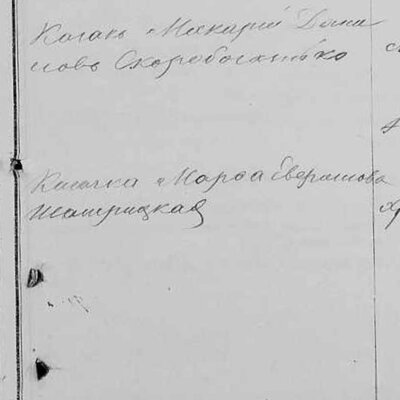 Козакъ Макарій Дама
новъ Скоробогатько
Козачка Марѳа Еверанова
Шатрицкая